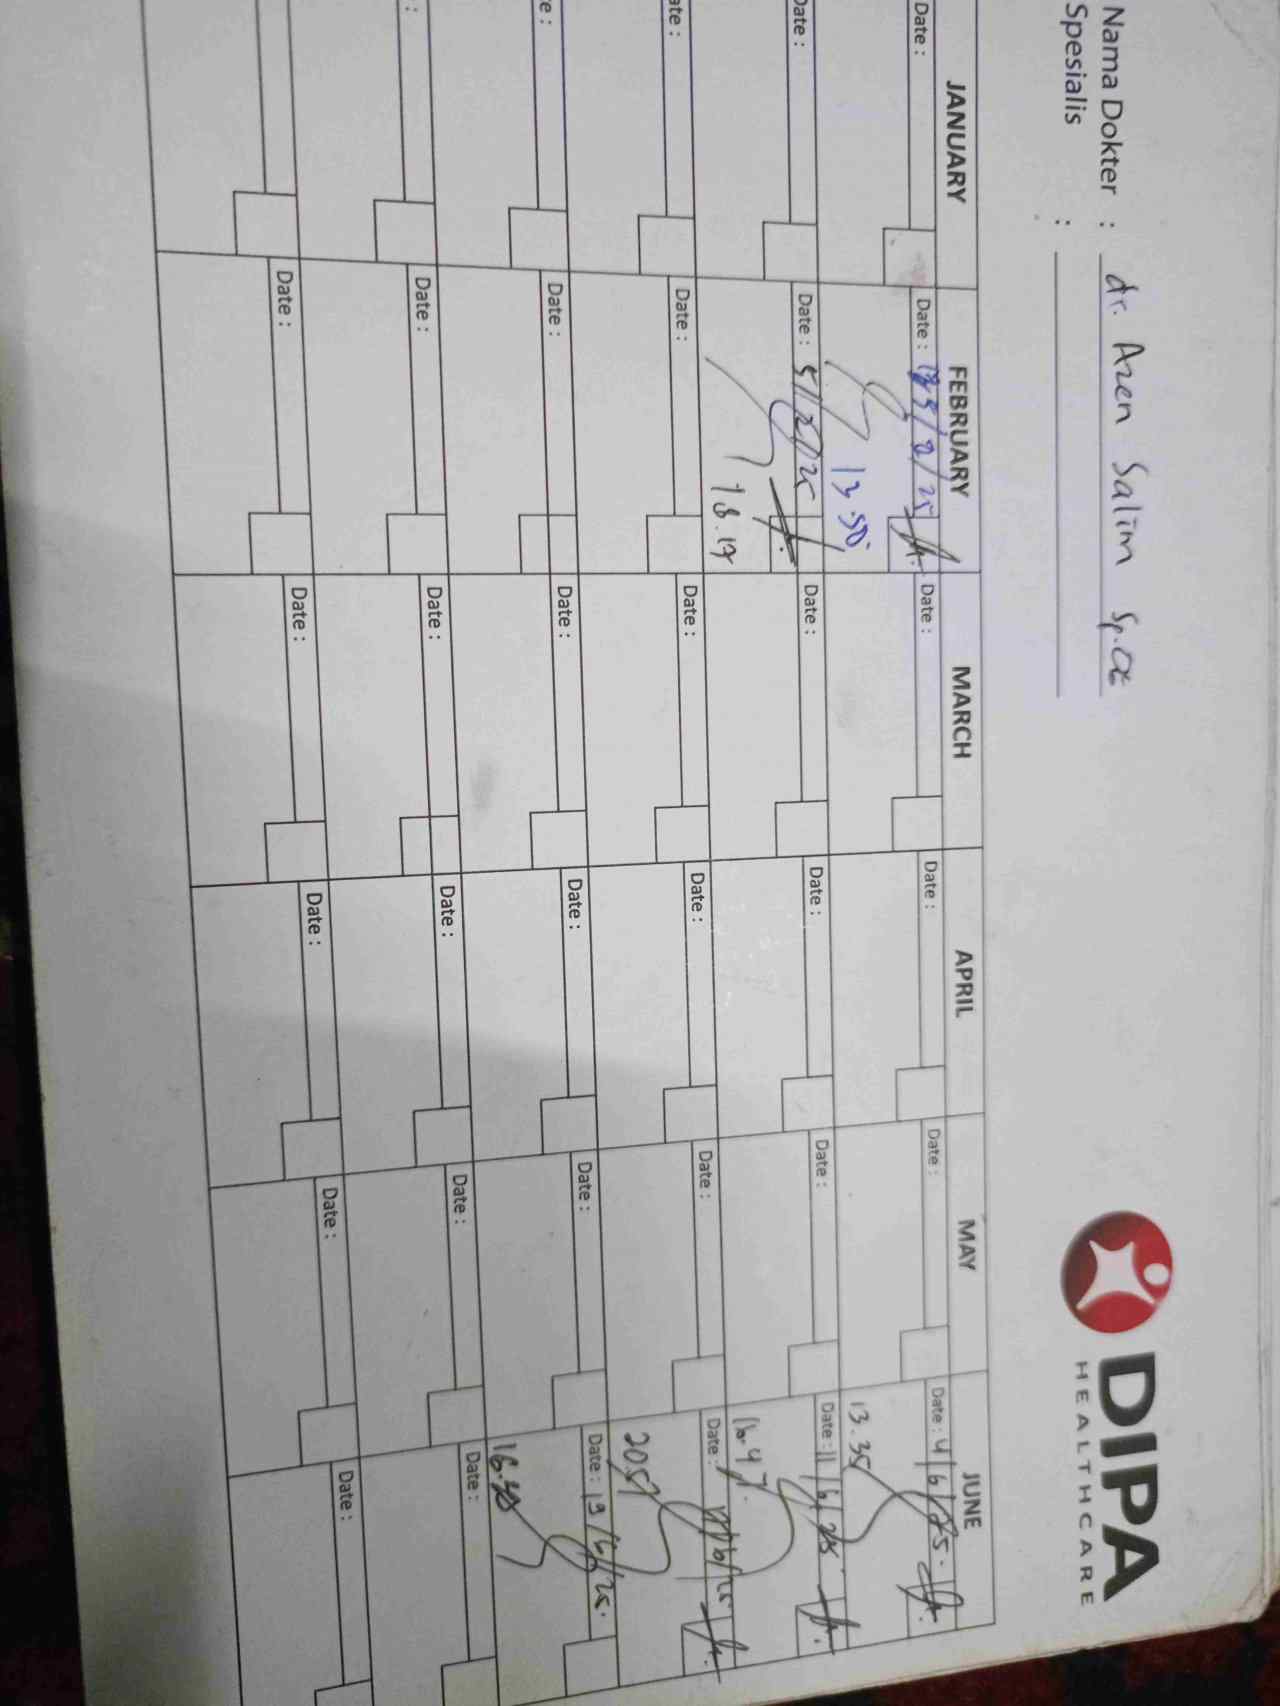 DIPA
HEALTHCARE
Nama Dokter : dr. Azen Salim Sp.OG
Spesialis :
JANUARY FEBRUARY MARCH APRIL MAY JUNE
Date : Date : 5/2/25 Date : Date : Date : Date : 4/6/25.
13.50 13.35
Date : Date : 5/2/25 Date : Date : Date : Date : 11/6/25.
18.17 16.47.
ate : Date : Date : Date : Date : Date : /6/25
20.57
e : Date : Date : Date : Date : Date : 19/6/25.
16.40
: Date : Date : Date : Date : Date :
Date : Date : Date : Date : Date :